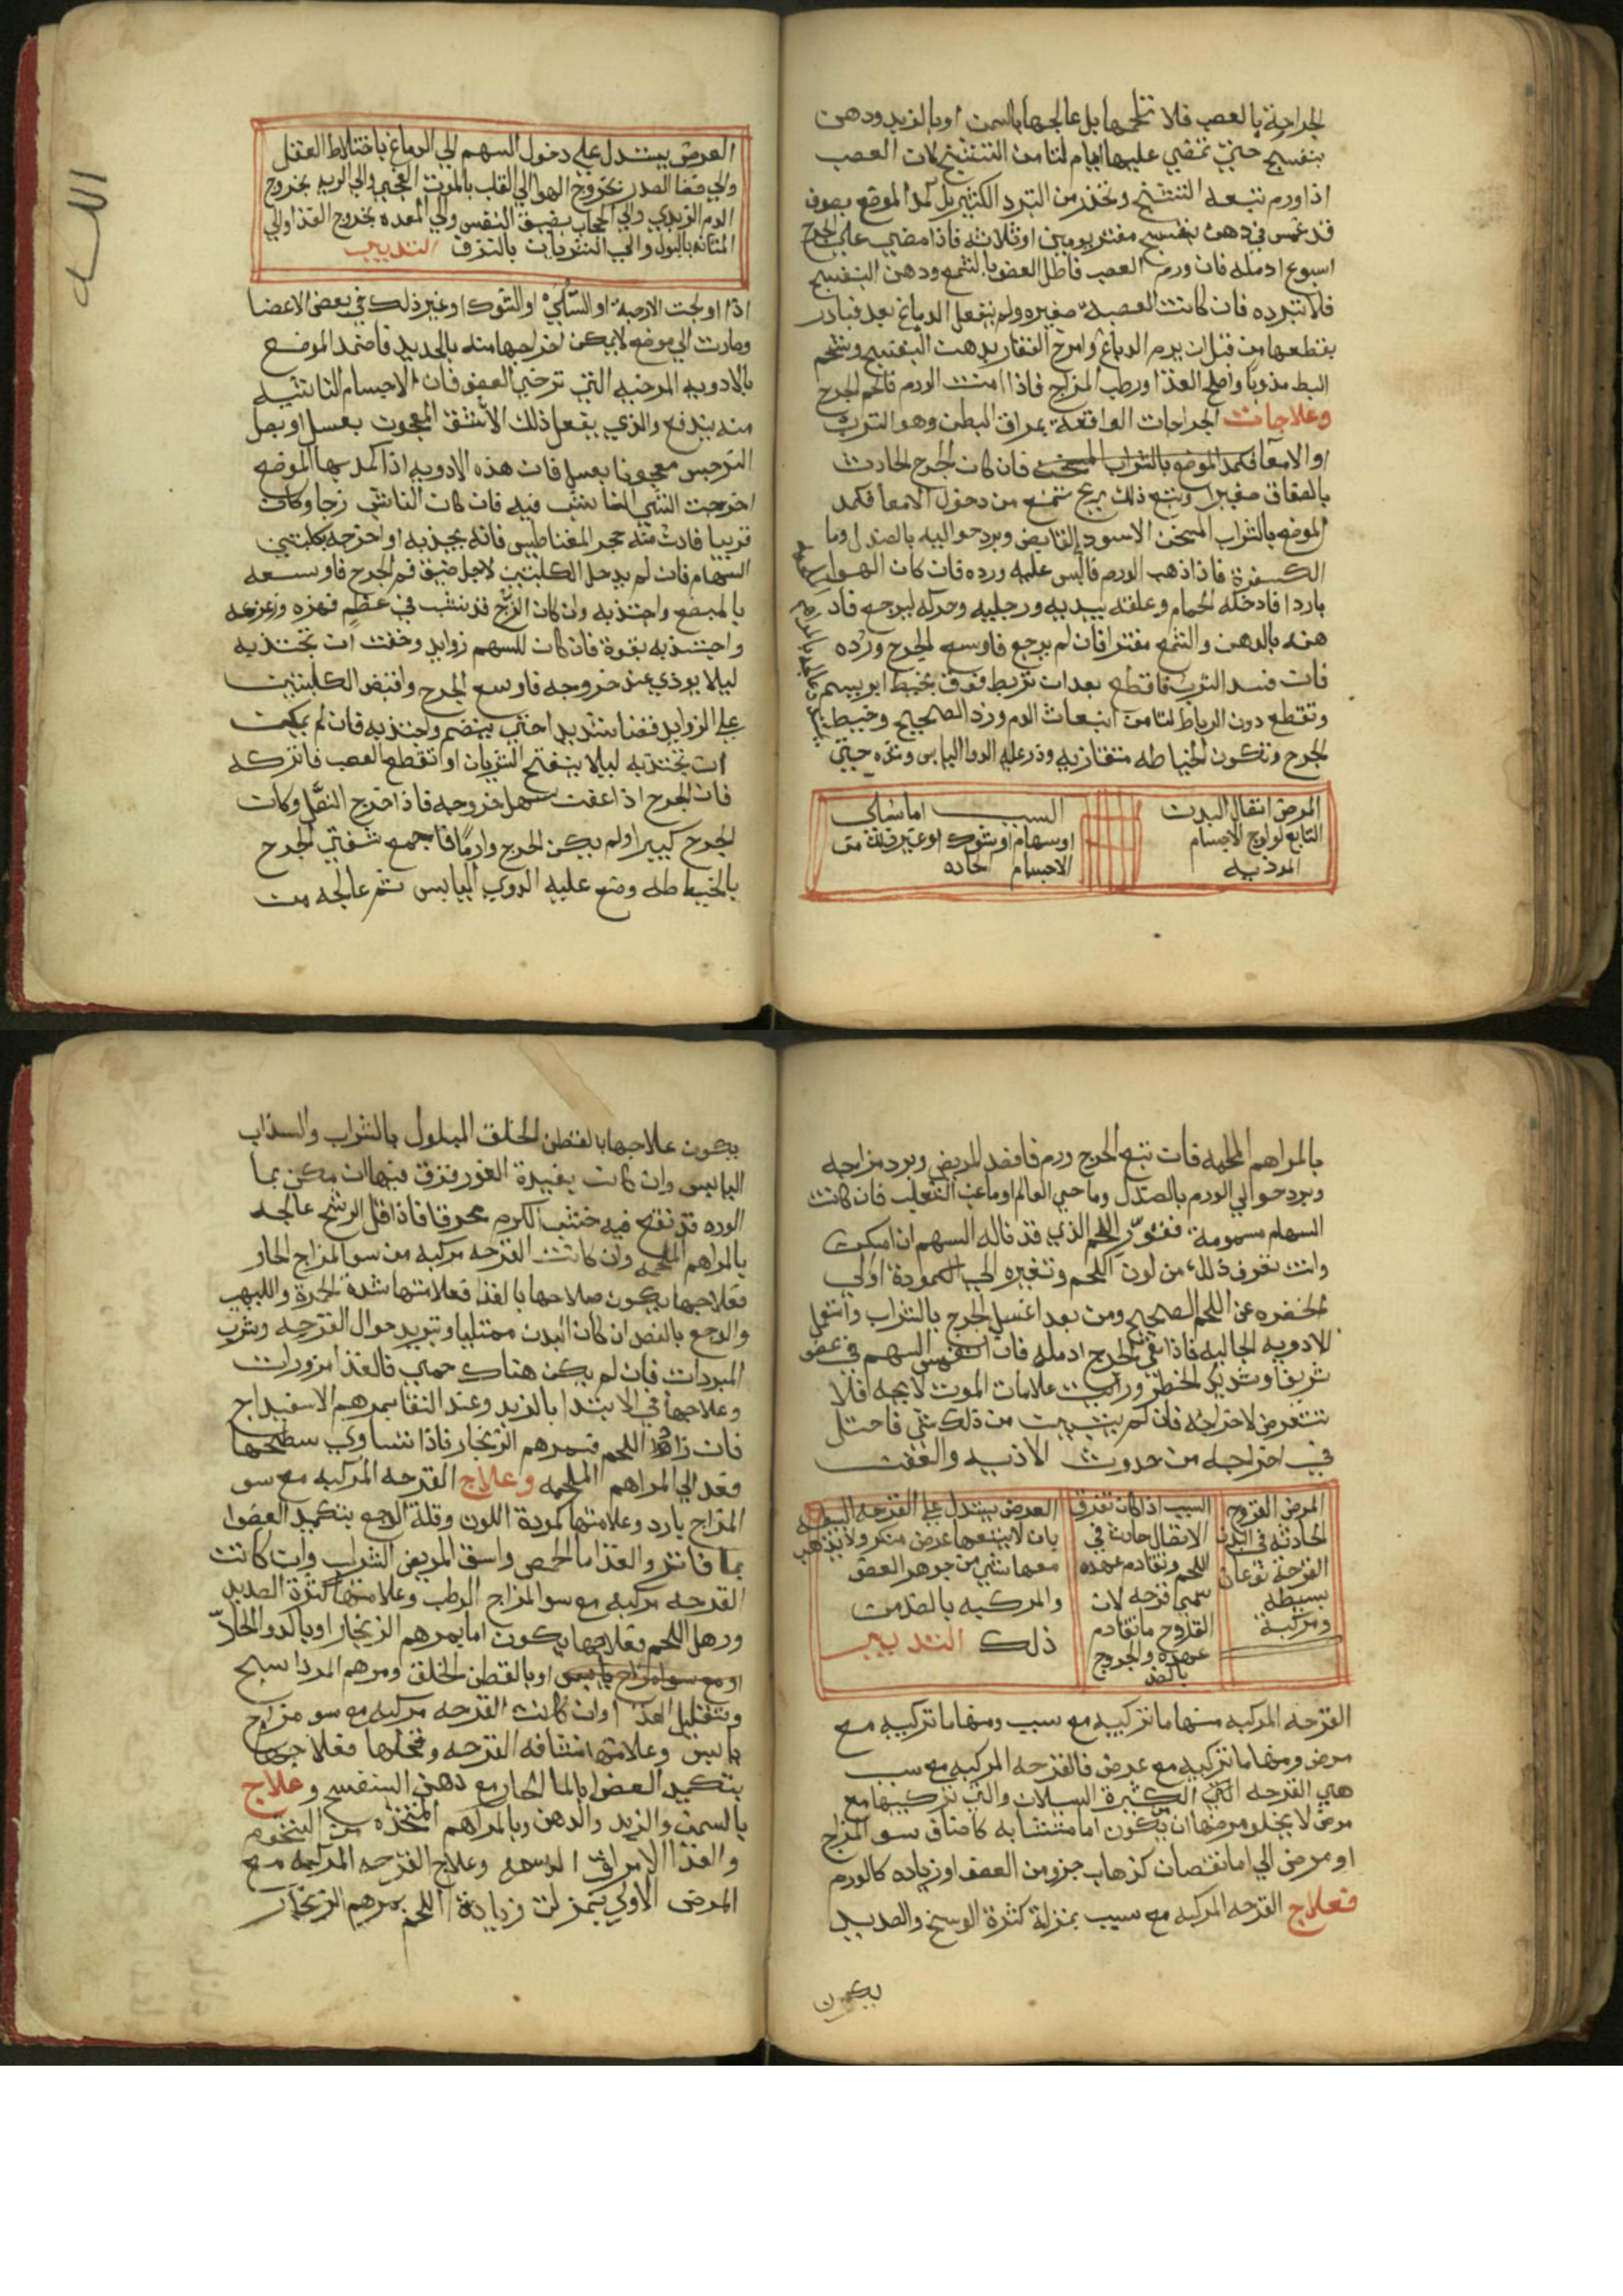 الجراحة بالعصب فلا تلحمها بل عالجها بالسمن او بالزبد ودهن
بنفسج حتي تمضي عليها ايام لتامن التشنج لان العصب
اذا ورم تبعه التشنج وتحذر من التبرد الكثير بل كمد الموضع بصوف
قد غمس في دهن بنفسج مفتر يومين او ثلاثه فاذا مضي علي الجرح
اسبوع ادمله فان ورم العصب فاطل العضو بالشمع ودهن البنفسج
فلا تبرده فان كانت العصبه صغيره ولم ينفعل الدماغ بعد فبادر
بقطعها من قبل ان يرم الدماغ وامرخ الفقار بدهن البنفسج وشحم
البط مذوبا واصلح الغذا ورطب المزاج فاذا امنت الورم فالحم الجرح
وعلاجات الجراحات الواقعة بمراق البطن وهو الترب
او الامعا فكمد الموضع بالشراب المسخن فان كان الجرح الحادث
بالصفاق صغيرا وتبع ذلك ريح تمنع من دخول الامعا فكمد
الموضع بالشراب المسخن الاسود القابض وبرد حواليه بالصندل وما
الكسفرة فاذا ذهب الورم فالبس عليه ورده فان كان الهوا
باردا فادخله الحمام وعلقه بيديه ورجليه وحركه ليرجع فاد
هنه بالدهن والشمع مفترا فان لم يرجع فاوسع الجرح ورده
فان فسد الترب فاقطعه بعد ان تربط فوق بخيط ابريسم
وتقطع دون الرباط لتامن انبعاث الدم ورد الصحيح وخيط
الجرح وتكون الخياطه متقاربه وذر عليه الدوا اليابس وشده حتي
المرض انفصال البدن
التابع لولوج الاجسام
المؤذيه
السبب اما سلي
او سهام او شوك او غير ذلك من
الاجسام الحاده
العرض يستدل علي دخول السهم الي الدماغ باختلاط العقل
والي فضا الصدر بخروج الهوا والي القلب بالموت الفجي والي الريه بخروج
الدم الزبدي والي الحجاب بضيق النفس والي المعده بخروج الغذا والي
المثانه بالبول والي الشريانات بالنزف التدبير
اذا اولجت الازجة او السلي او الشوك او غير ذلك في بعض الاعضا
وصارت الي موضع لا يمكن اخراجها منه بالحديد فاضمد الموضع
بالادويه المرخيه التي ترخي العضو فان الاجسام الناشبه
منه يندفع والذي يفعل ذلك الاشق المعجون بعسل او بصل
النرجس معجونا بعسل فان هذه الادويه اذا كمد بها الموضع
اخرجت الشي الناشب فيه فان كان الناشب زجا وكان
قريبا فادن منه حجر المغناطيس فانه يجذبه او اخرجه بكلبتي
السهام فان لم يدخل الكلبتين لاجل ضيق فم الجرح فاوسعه
بالمبضع واجتذبه وان كان الزج قد نشب في عظم فهزه وزعزعه
واجتذبه بقوة فان كان للسهم زوايد وخفت ان تجتذبه
ليلا يوذي عند خروجه فاوسع الجرح واقبض الكلبتين
علي الزوايد قبضا شديدا حتي ينضم واجتذبه فان لم يمكن
ان تجتذبه ليلا ينفتح الشريان او تقطع العصب فاتركه
فان الجرح اذا عفن سهل خروجه فاذا اخرج النصل وكان
الجرح كبيرا ولم يكن الجرح وارما فاجمع شفتي الجرح
بالخياطه وضع عليه الدوي اليابس ثم عالجه من
بالمراهم الملحمه فان تبع الجرح ورم فافصد المريض وبرد مزاجه
وبرد حوالي الورم بالصندل وما حي العالم او ما عنب الثعلب فان كانت
السهام مسمومة فقور اللحم الذي قد ناله السهم ان امكن
وانت تعرف ذلك من لون اللحم وتغيره الي الكمودة او الي
الخضره عن اللحم الصحيح ومن بعد اغسل الجرح بالشراب واستعمل
الادويه الجاليه فاذا نقي الجرح ادمله فان السهم في عضو
شريف وشديد الخطر ورايت علامات الموت لايحه فلا
تتعرض لاخراجه فان لم يتبين من ذلك شي فاحتل
في اخراجه من حدوث الاذيه والعفن
المرض القروح
الحادثه في البدن
القرحة نوعان
بسيطه
ومركبة
السبب اذا كان تفرق
الاتصال حادث في
اللحم وتقادم عهده
سمي قرحه لان
القروح ما تقادم
عهده والجروح
بالضد
العرض يستدل علي القرحه البسيطه
بان لا يتبعها عرض منكر ولا يذهب
معها شي من جوهر العضو
والمركبه بالضد من
ذلك التدبير
القرحه المركبه منها ما تركيبه مع سبب ومنها ما تركيبه مع
مرض ومنها ما تركيبه مع عرض فالقرحه المركبه مع سبب
هي القرحه التي الكثيرة السيلان والتي تركيبها مع
مرض لا يخلو مرضها ان يكون اما متشابه كاصناف سو المزاج
او مرض الي اما نقصان كذهاب جزو من العضو او زياده كالورم
فعلاج القرحه المركبه مع سبب بمنزلة كثرة الوسخ والصديد
يكون
يكون علاجها بالقطن الخلق المبلول بالشراب والسذاب
اليابس وان كانت بعيدة الغور فزرق فيها ان يمكن بما
الورد قد نقع فيه خشب الكرم محرقا فاذا قل الرشح عالجه
بالمراهم الملحمه وان كانت القرحه مركبه من سو المزاج الحار
فعلاجها يكون صلاحها بالغذا فعلامتها شدة الحمرة واللهيب
والوجع بالفصد ان كان البدن ممتليا وتبريد حوال القرحه وشرب
المبردات فان لم يكن هناك حمي فالغذا مزورات
وعلاجها في الابتدا بالزبد وعند النقا بمرهم الاسفيداج
فان زاد اللحم فبمرهم الزنجار فاذا تساوي سطحها
فعد الي المراهم الملحمه وعلاج القرحه المركبه مع سو
المزاج بارد وعلامتها كمودة اللون وقلة الوجع بتكميد العضو
بما فاتر والغذا ما الحمص واسق المريض الشراب وان كانت
القرحه مركبه مع سو المزاج الرطب وعلامتها كثرة الصديد
ورهل اللحم فعلاجها يكون اما بمرهم الزنجار او بالدوا الحلا
او مع سو المزاج يابس او بالقطن الخلق ومرهم المرداسنج
وتقليل الغذا وان كانت القرحه مركبه مع سو مزاج
يابس وعلامتها نشافه القرحه وقحلها فعلاجها
بتكميد العضو بالما الحار مع دهن البنفسج وعلاج
بالسمن والزبد والدهن وبالمراهم المتخذه من الشحوم
والغذا الامراق الدسمه وعلاج القرحه المركبه مع
المرض الاولي بمنزلة زيادة اللحم بمرهم الزنجار